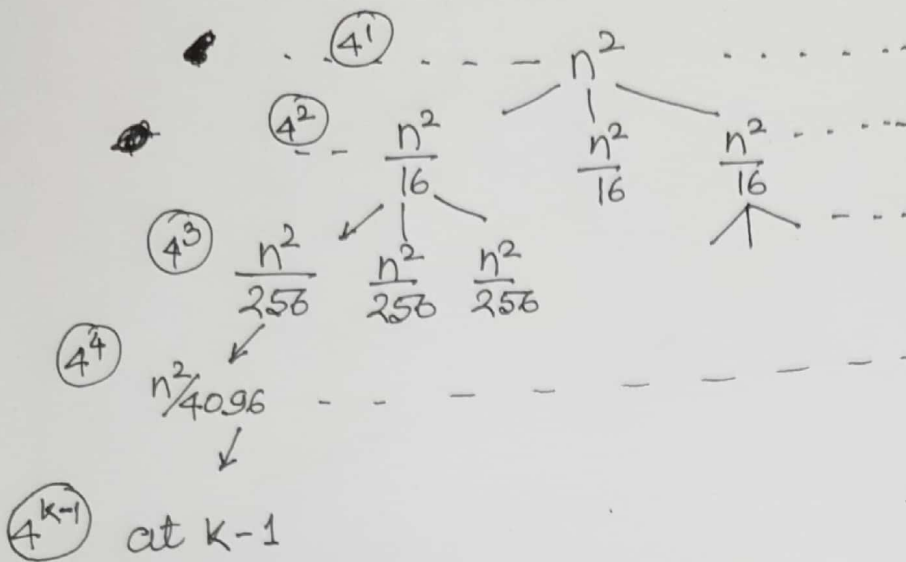 4¹ n²
4² n²/16 n²/16 n²/16
4³ n²/256 n²/256 n²/256
4⁴ n²/4096
4ᵏ⁻¹ at K-1